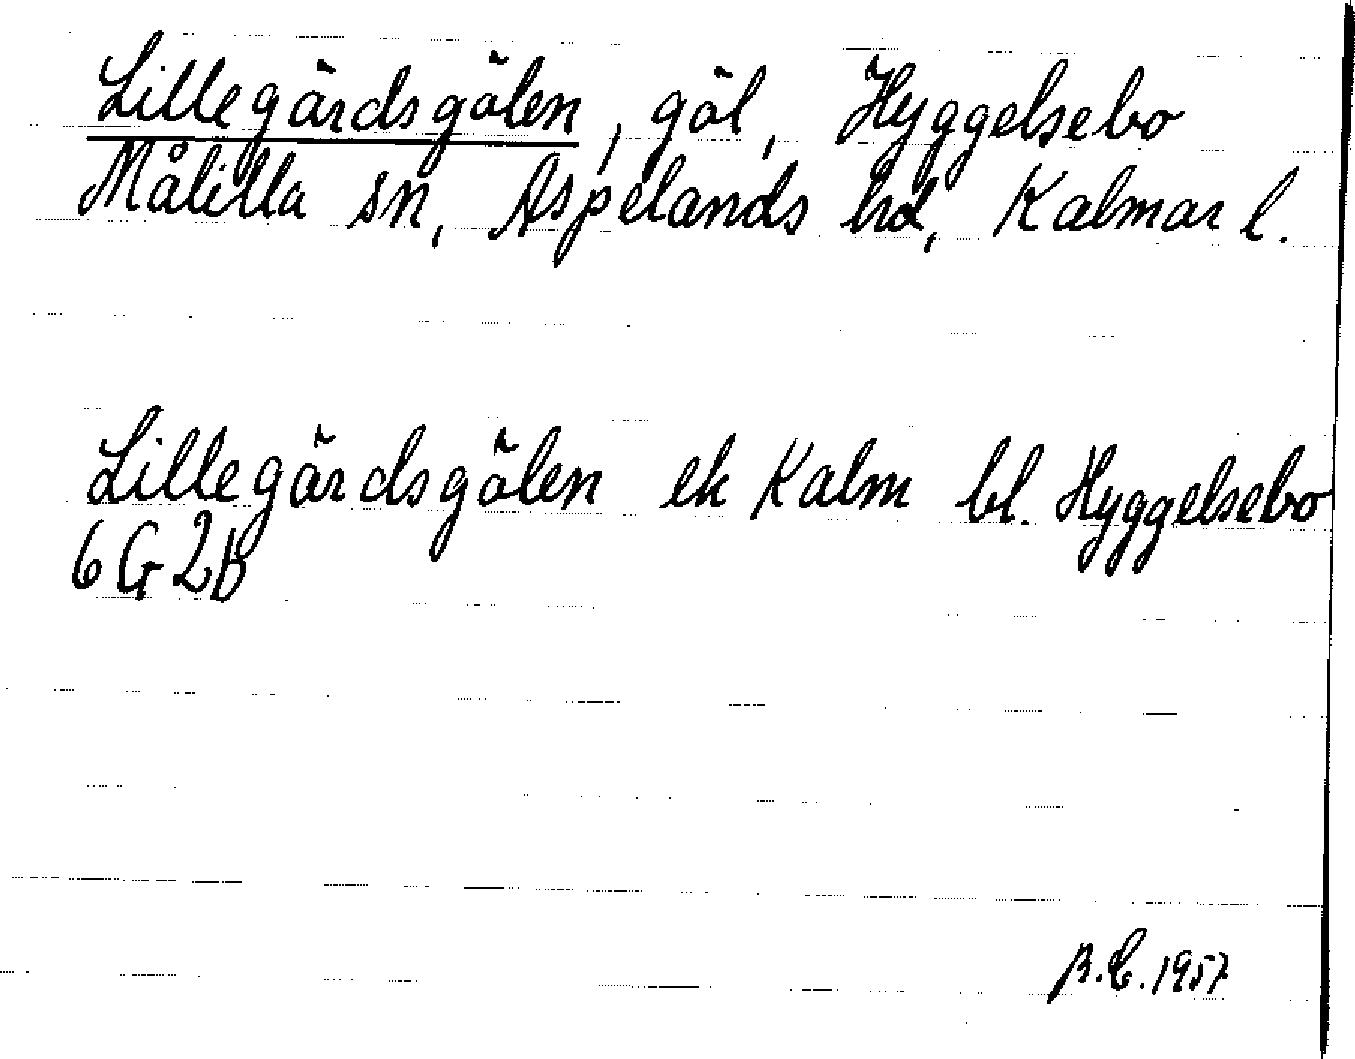 Lillegärdsgölen, göl, Hyggelsebo
Målilla sn, Aspelands hd, Kalmar l.
Lillegärdsgölen ek Kalm bl. Hyggelsebo
6 G 2b
B.C. 1957